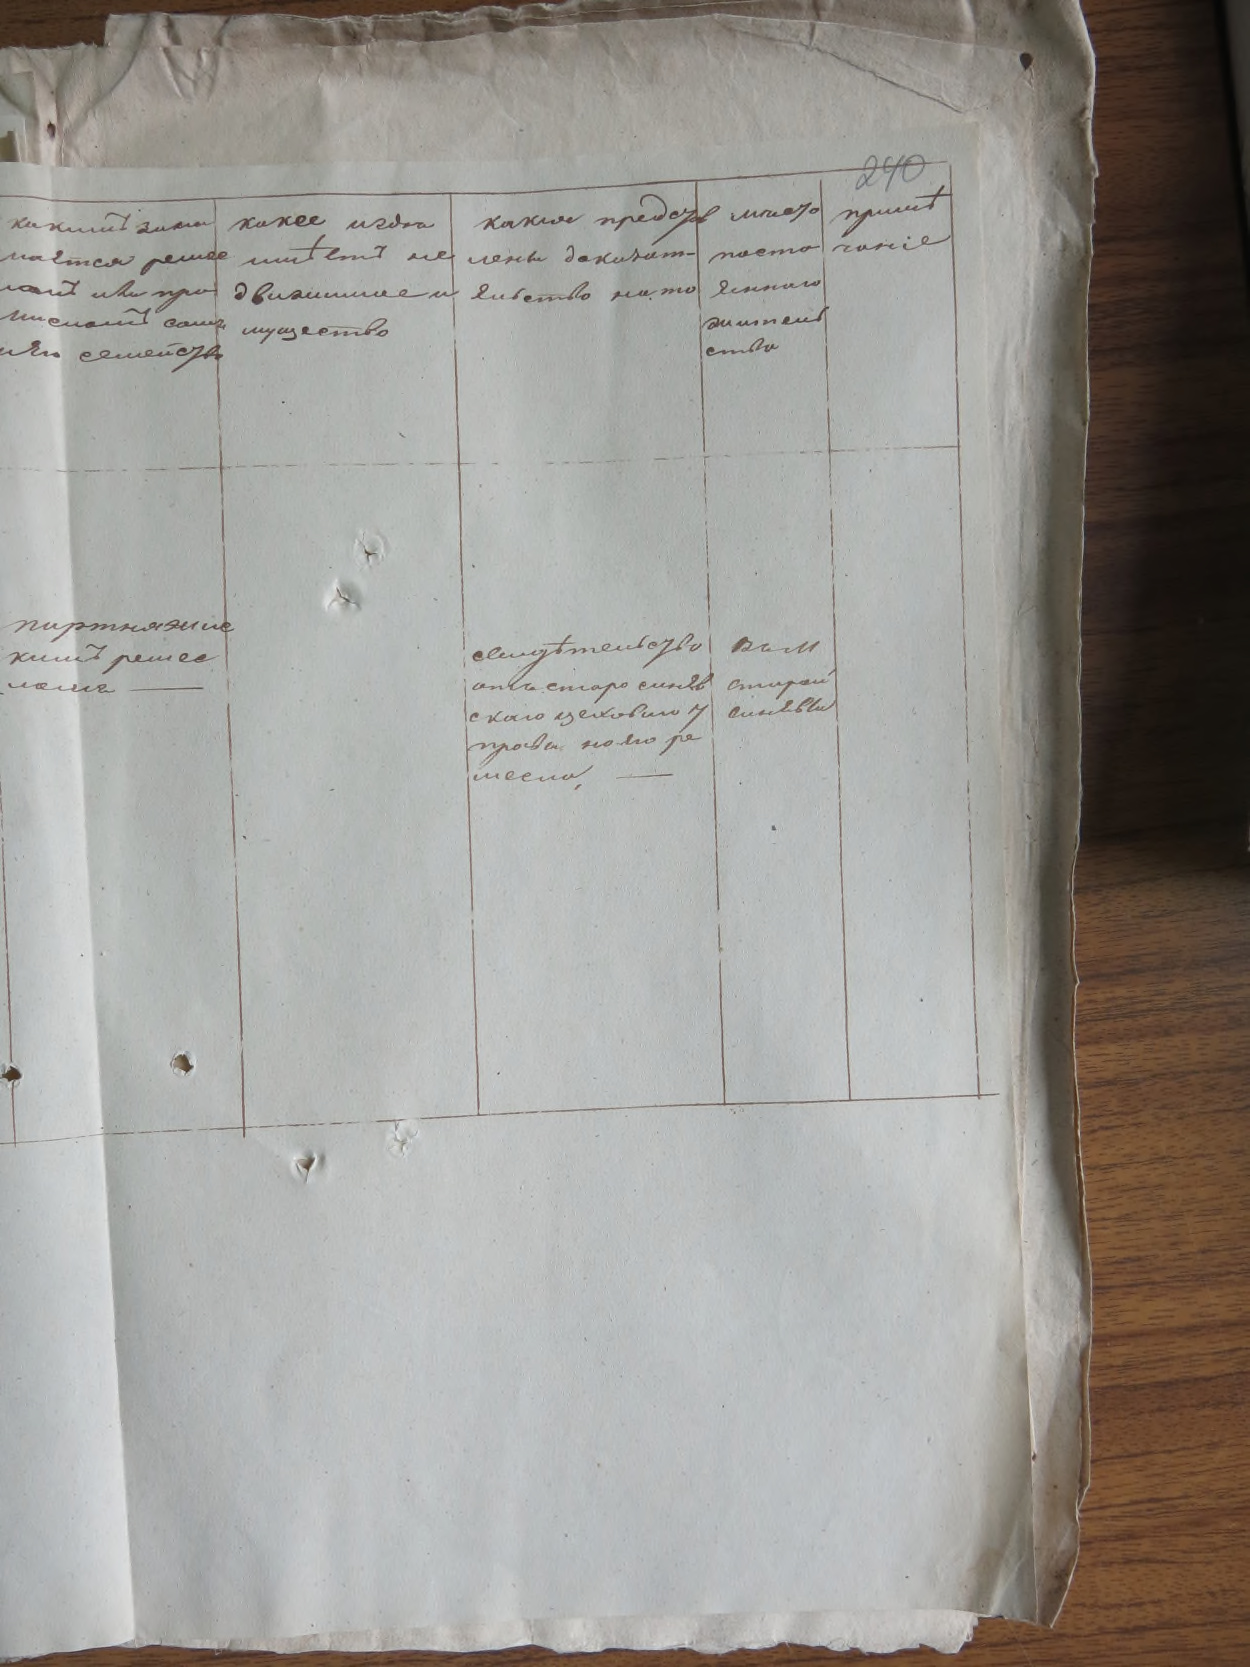 240
какимъ зани
мается ремес
ломъ или про
мысломъ самъ
или семейство
какое и гдѣ
имѣетъ не
движимое и
мущество
какие предста
лены доказат-
ельство на то
место
посто
яннаго
жителъ
ство
примѣ
чаніе
партняжис
кимъ ремес
ломъ —
свидѣтельство
отъ старо синяв
скаго цеховаго у
права на его ре
месло, —
Въ м
старой
синявы